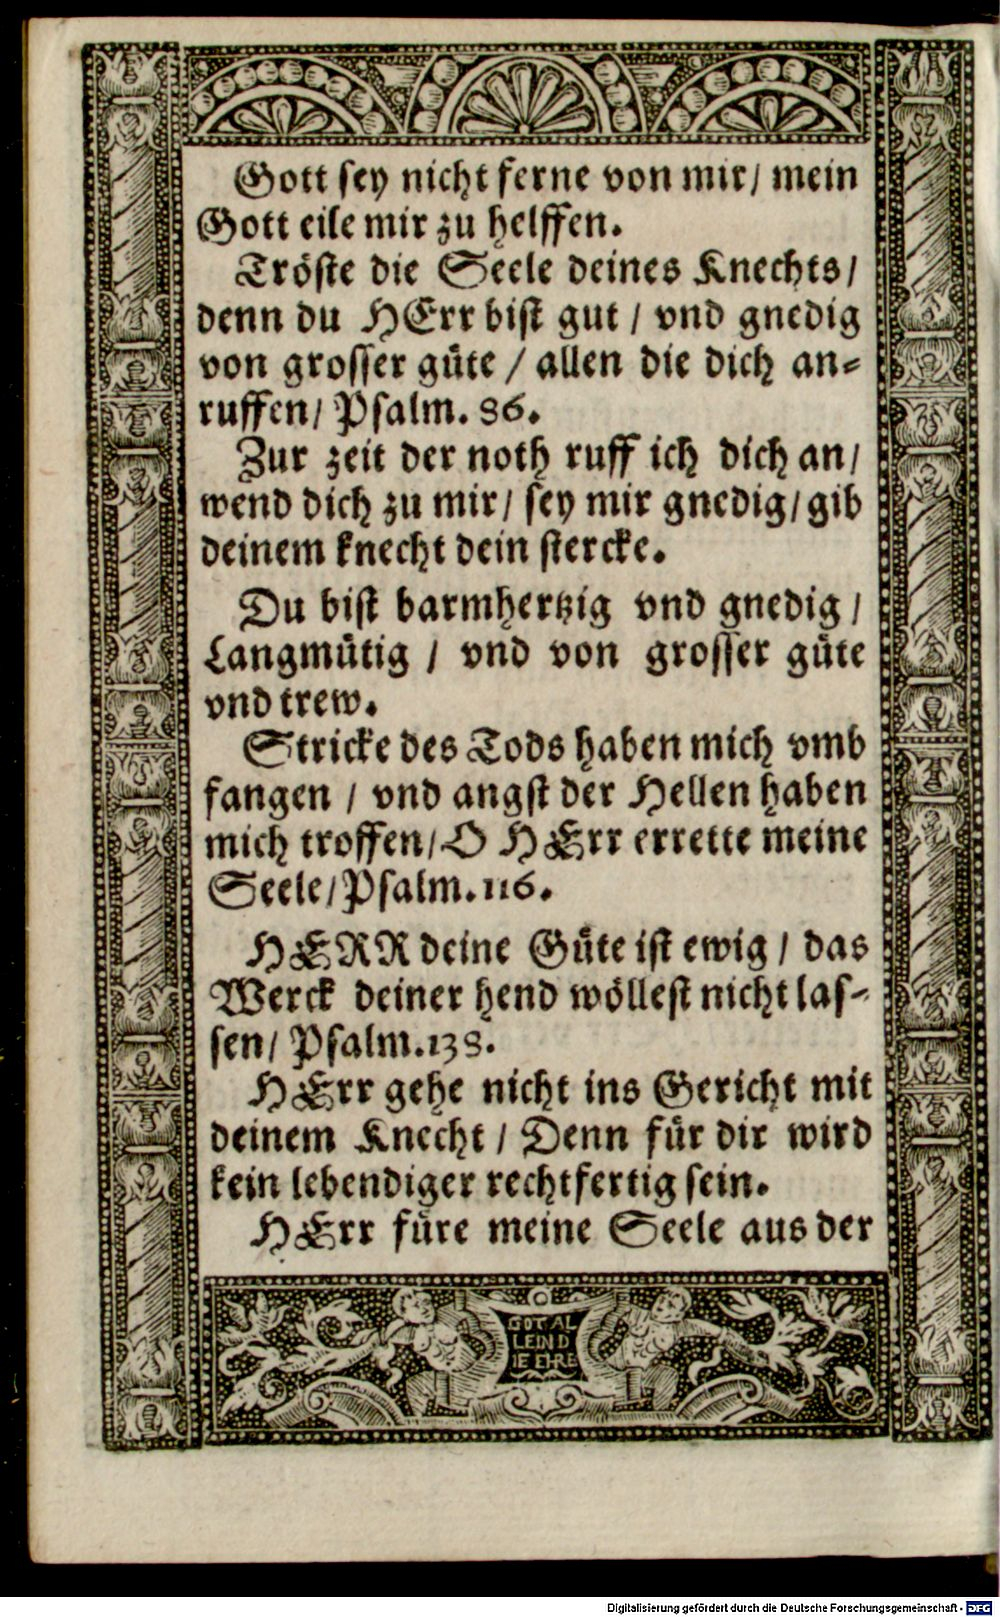 Gott sey nicht ferne von mir/ mein
Gott eile mir zu helffen.
Tröste die Seele deines Knechts/
denn du HErr bist gut / vnd gnedig
von grosser güte / allen die dich an-
ruffen/ Psalm. 86.
Zur zeit der noth ruff ich dich an/
wend dich zu mir/ sey mir gnedig/ gib
deinem knecht dein stercke.
Du bist barmhertzig vnd gnedig /
Langmütig / vnd von grosser güte
vnd trew.
Stricke des Tods haben mich vmb
fangen / vnd angst der Hellen haben
mich troffen/ O HErr errette meine
Seele/ Psalm. 116.
HERR deine Güte ist ewig / das
Werck deiner hend wöllest nicht las-
sen/ Psalm. 138.
HErr gehe nicht ins Gericht mit
deinem Knecht / Denn für dir wird
kein lebendiger rechtfertig sein.
HErr füre meine Seele aus der
GOT AL
LEIN D
IE EHRE
Digitalisierung gefördert durch die Deutsche Forschungsgemeinschaft - DFG